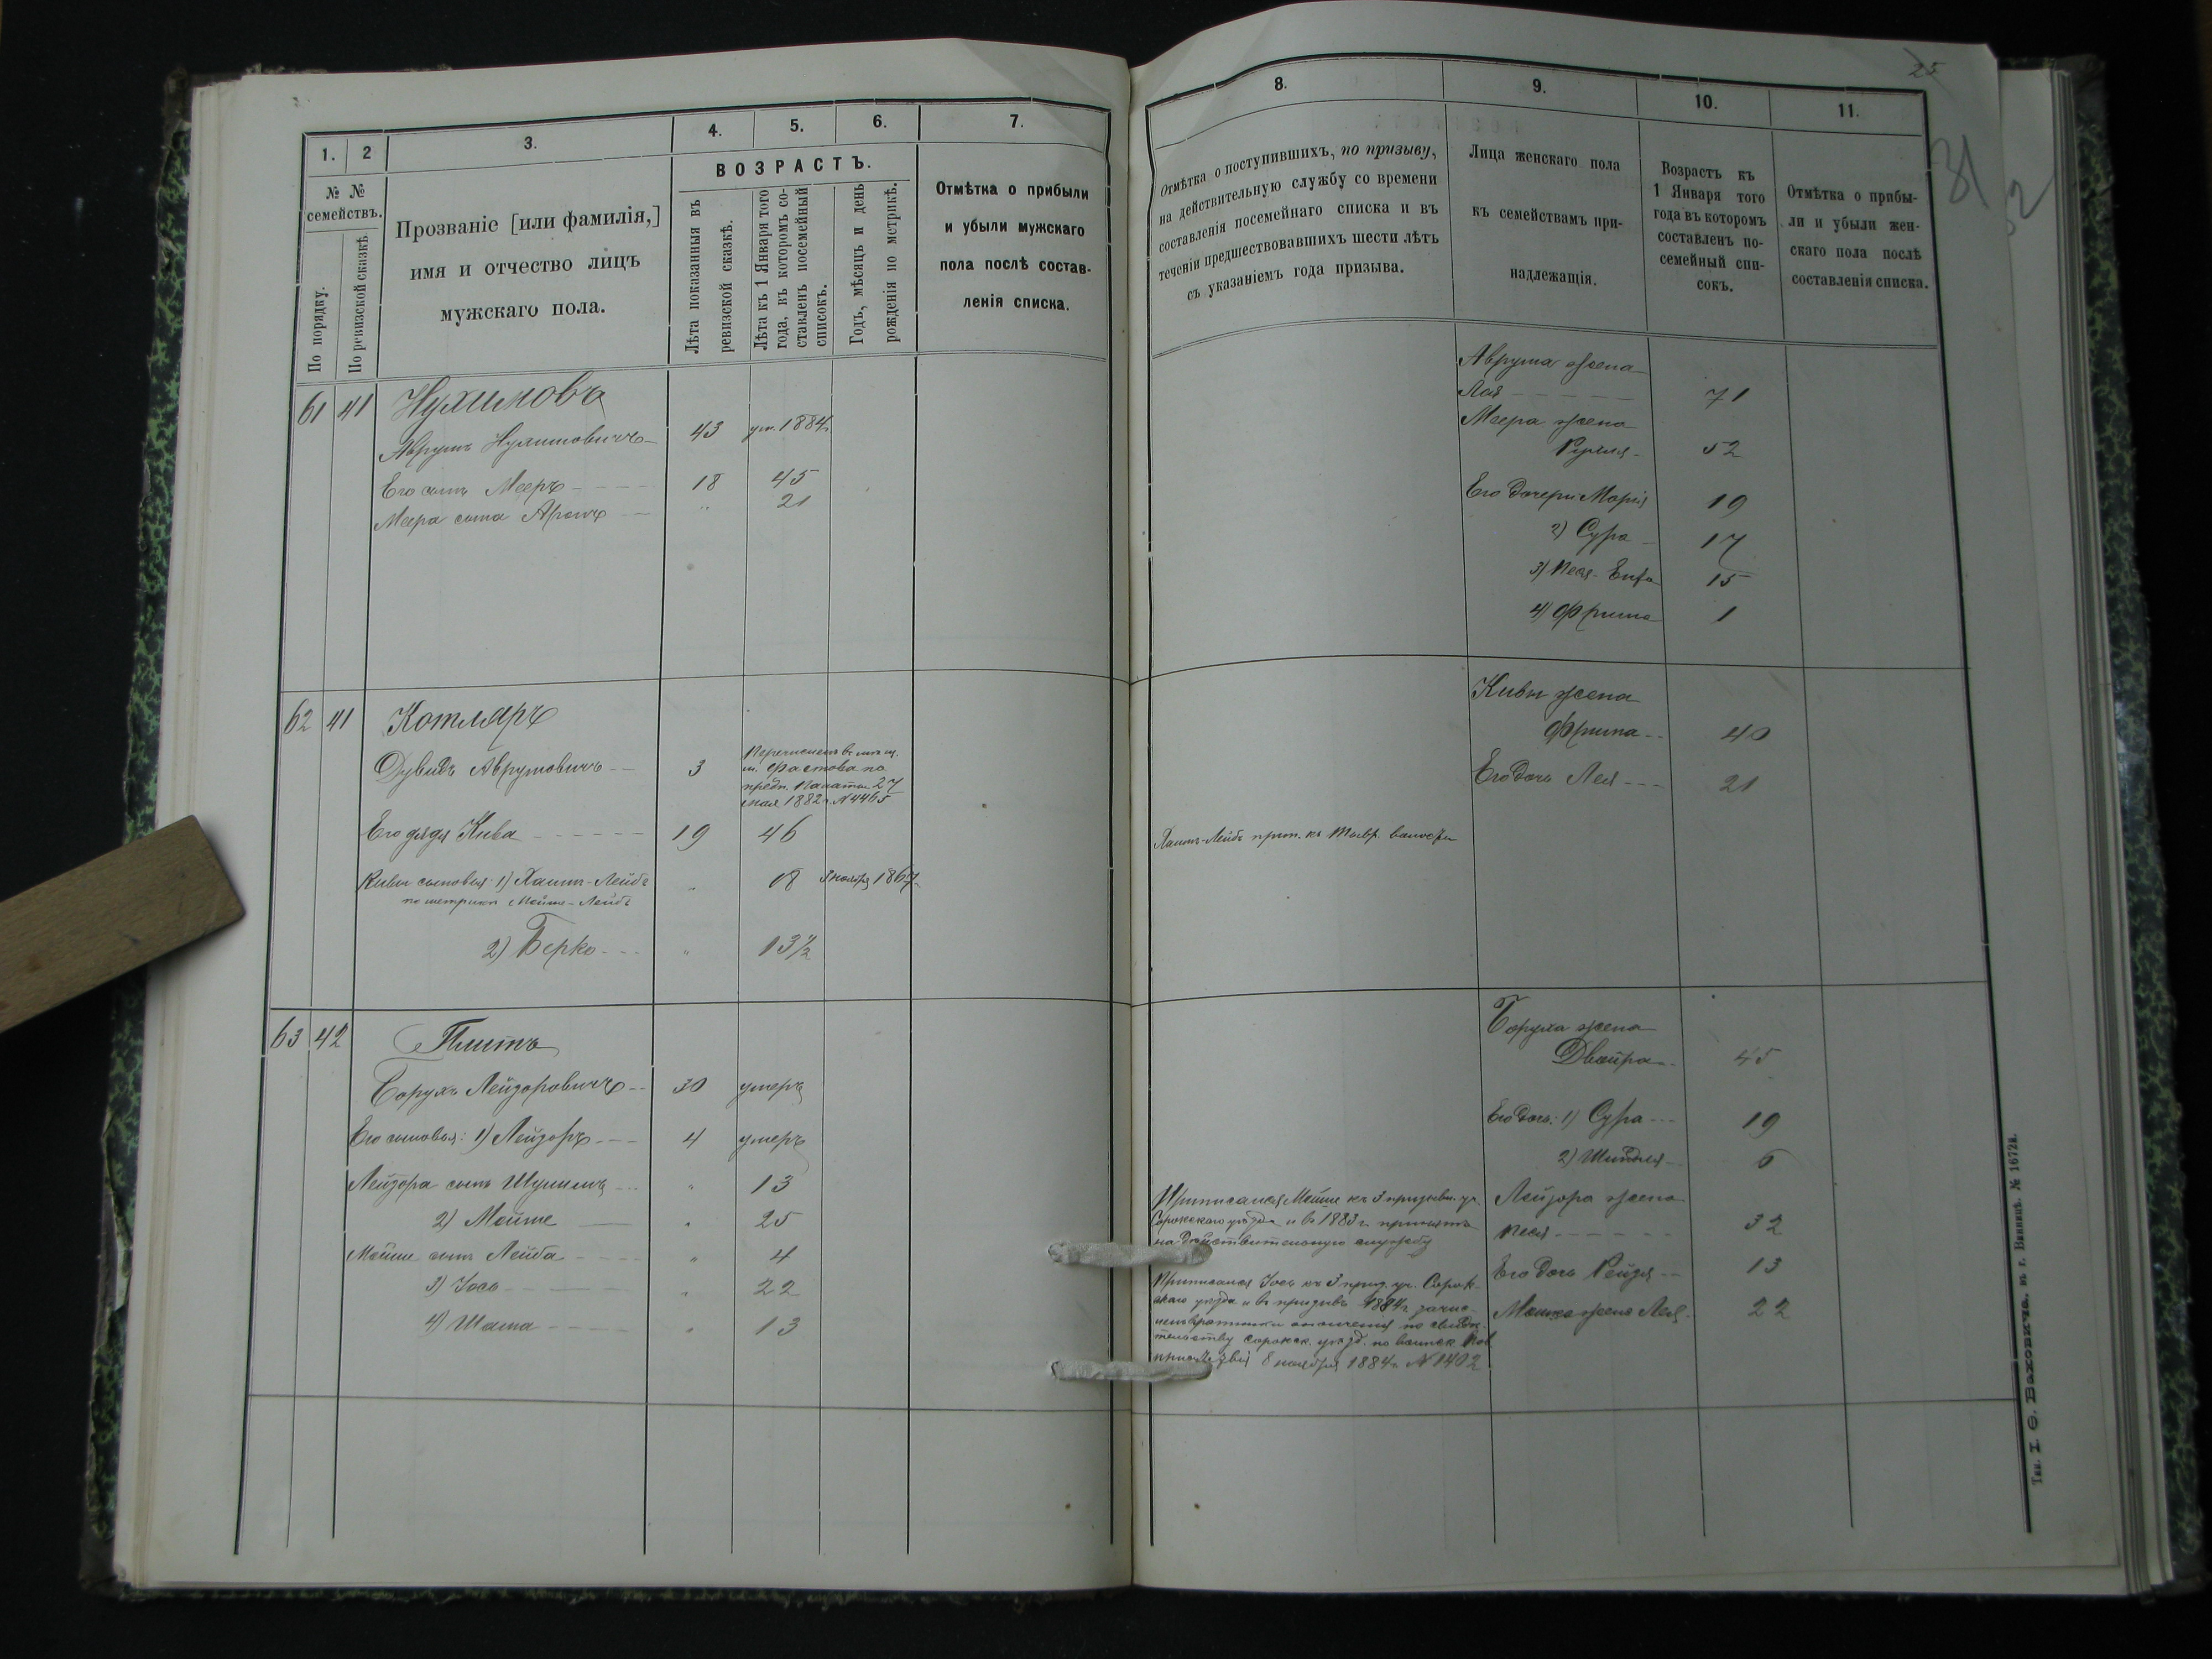 1.
2
3.
4.
5.
6.
7.
№ №
семействъ.
По порядку.
По ревизской сказкѣ.
Прозваніе [или фамилія,]
имя и отчество лицъ
мужскаго пола.
ВОЗРАСТЪ.
Лѣта показанныя въ
ревизской сказкѣ.
Лѣта къ 1 Января того
года, къ которомъ со-
ставленъ посемейный
списокъ.
Годъ, мѣсяцъ и день
рожденія по метрикѣ.
Отмѣтка о прибыли
и убыли мужскаго
пола послѣ состав-
ленія списка.
61 41 Нухимовъ
Аврумъ Нухимовичъ 43 ум. 1884
Его сынъ Мееръ 18 45
Меера сынъ Аронъ " 21
62 41 Котляръ
Дувидъ Аврумовичъ 3
Перечисленъ въ мѣщ.
м. Фастова по
предп. Палаты 27
мая 1882 г. № 4465
Его дядя Кива 19 46
Кивы сыновья: 1) Хаимъ-Лейбъ " 18 ноября 1867
по метрикѣ Мойше-Лейбъ
2) Берко " 13½
63 42 Плитъ
Борухъ Лейзоровичъ 30 умеръ
Его сыновья: 1) Лейзоръ 4 умеръ
Лейзора сынъ Шулимъ " 13
2) Мойше " 25
Мойше сынъ Лейба " 4
3) Іосъ " 22
4) Шама " 13
25
8.
9.
10.
11.
Отмѣтка о поступившихъ, по призыву,
на дѣйствительную службу со времени
составленія посемейнаго списка и въ
теченіи предшествовавшихъ шести лѣтъ
съ указаніемъ года призыва.
Лица женскаго пола
къ семействамъ при-
надлежащія.
Возрастъ къ
1 Января того
года въ которомъ
составленъ по-
семейный спи-
сокъ.
Отмѣтка о прибы-
ли и убыли жен-
скаго пола послѣ
составленія списка.
31
32
Аврума жена
Лея 71
Меера жена
Рухля 52
Его дочери Марія 19
2) Сура 17
3) Песя-Ента 15
4) Фрима 1
Кивы жена
Фрима 40
Его дочь Лея 21
Хаимъ-Лейбъ прип. къ волости
Боруха жена
Двойра 45
Его дочь: 1) Сура 19
2) Шиндля 6
Приписался Мойше къ 3 призывн. уч.
Сорокскаго уѣзда и въ 1883 г. принятъ
на дѣйствительную службу
Лейзора жена
Песя 32
Его дочь Рейзя 13
Мошка жена Лея 22
Приписался Іосъ къ 3 приз. уч. Сорок-
скаго уѣзда и въ призывъ 1884 г. зачис-
ленъ ратники ополченія по свидѣ-
тельству Сорокск. уѣзд. по воинск. пов.
присутствія 8 ноября 1884 г. № 1402
Тип. І. Ѳ. Баховича. въ г. Винницѣ. № 1672в.